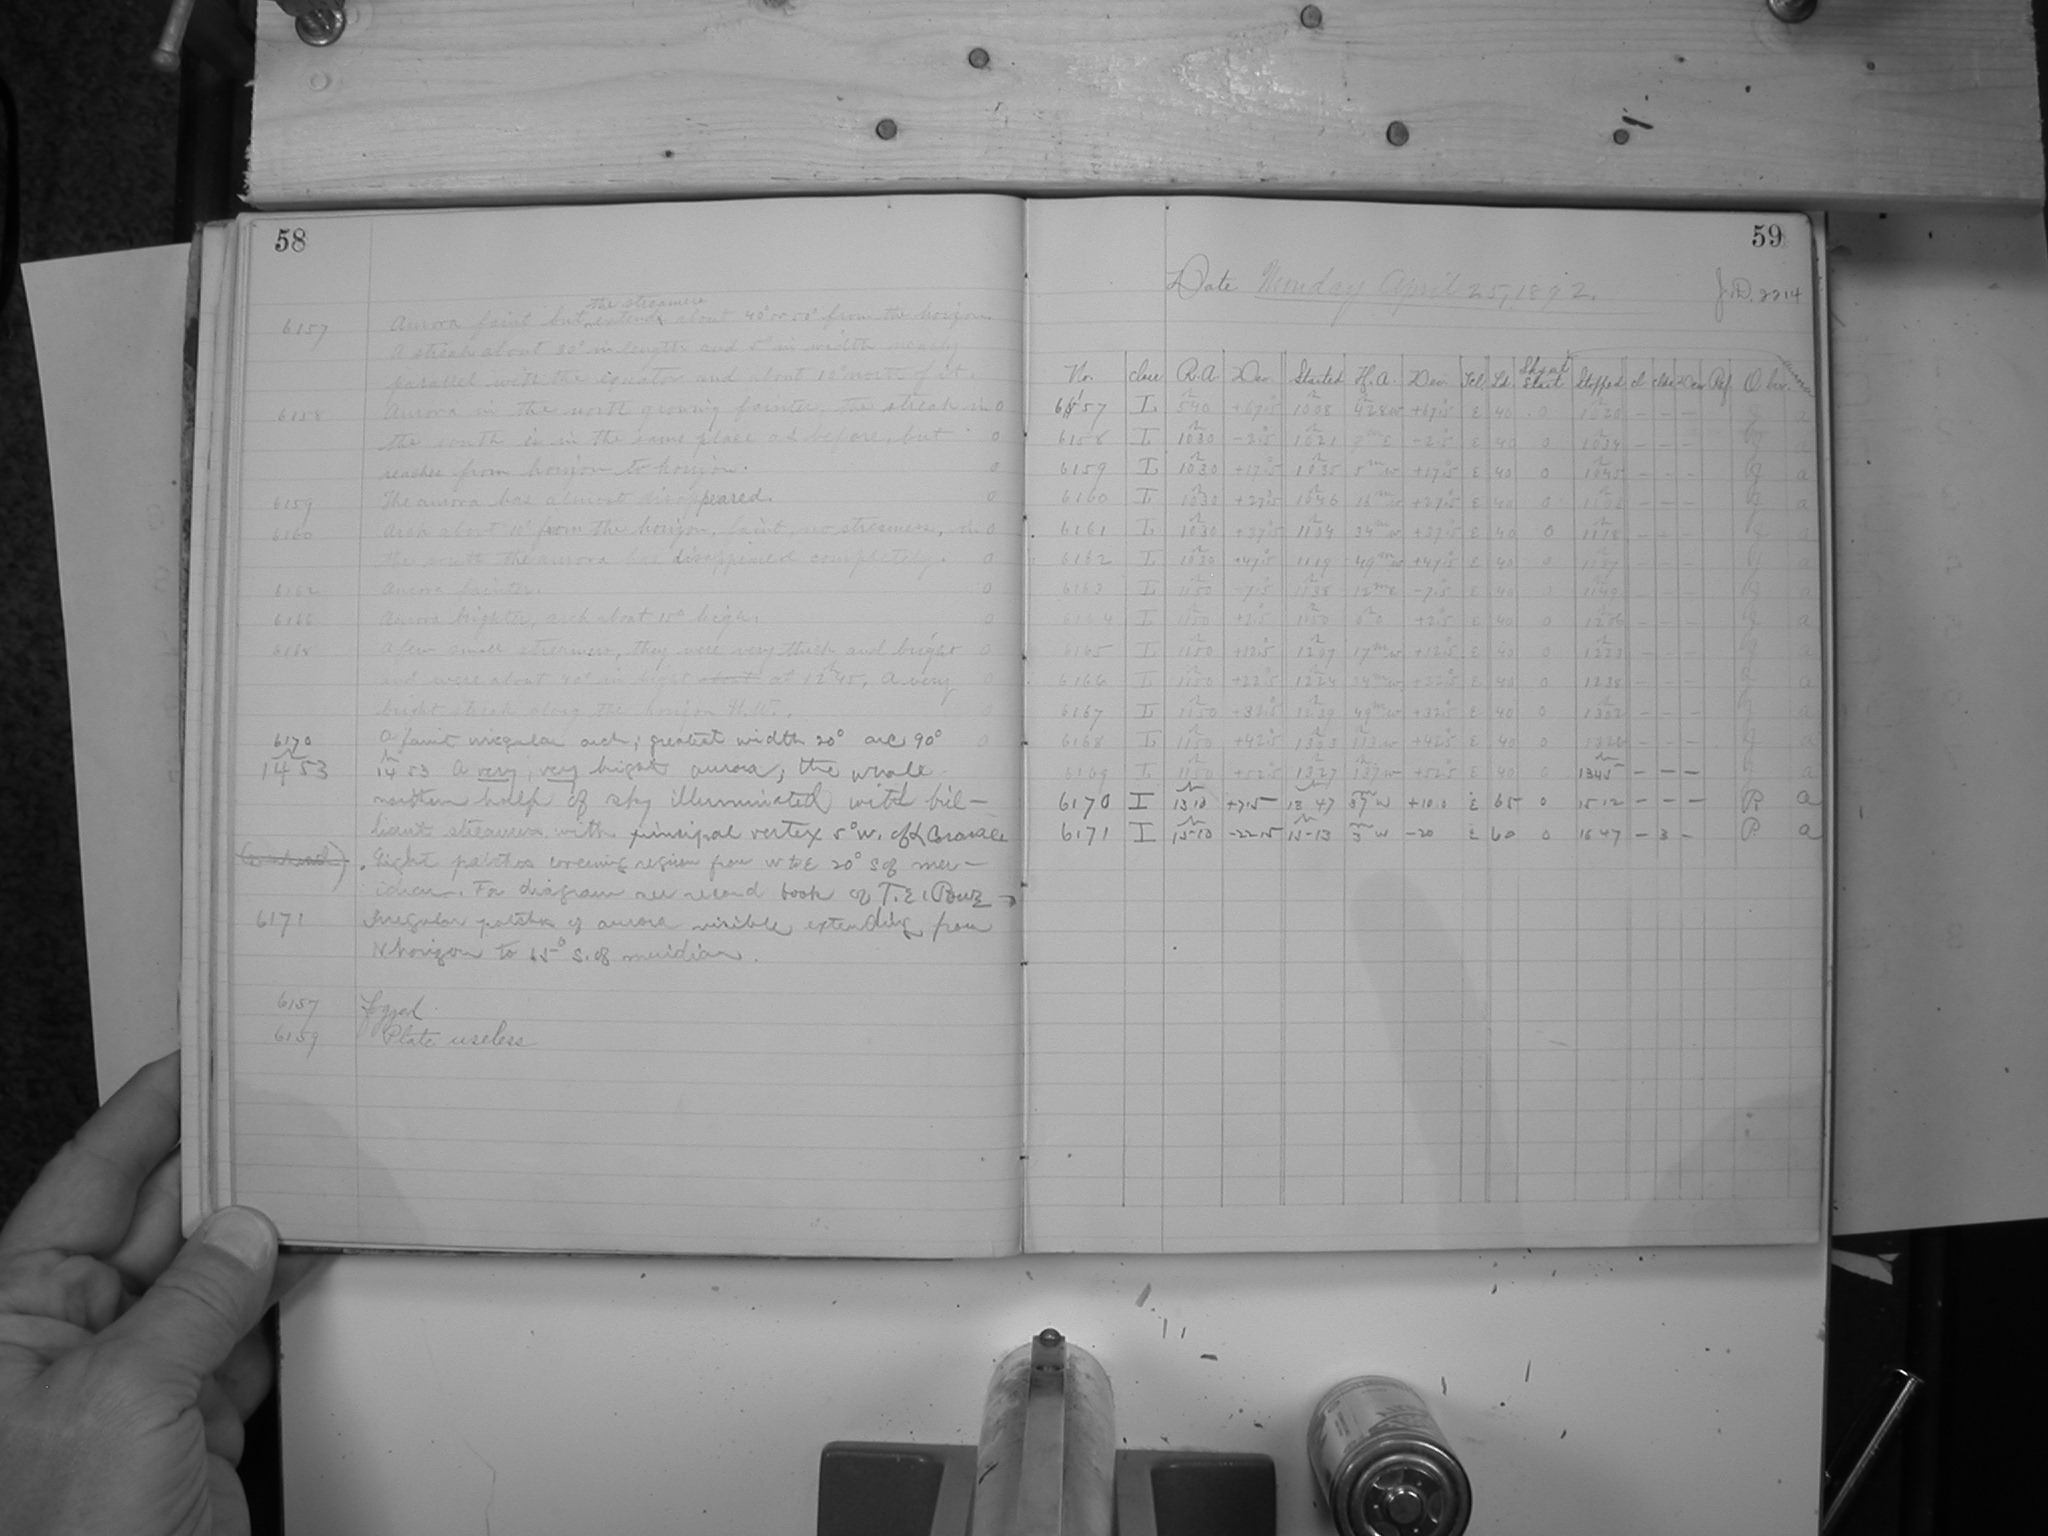 58
6157 Aurora faint but the streamers extends about 40° or 50° from the horizon.
A streak about 30° in length and 5° in width nearly
parallel with the equator and about 10° north of it.
6158 Aurora in the north growing fainter, the streak in 0
the south is in the same place as before, but 0
reaches from horizon to horizon. 0
6159 The aurora has almost disappeared. 0
6160 Arch about 10° from the horizon, faint, no streamers, in 0
the south the aurora has disappeared completely. 0
6162 Aurora fainter. 0
6166 Aurora brighter, arch about 15° high. 0
6168 A few small streamers, they were very thick and bright 0
and were about 40° in hight about at 12h 45, A very 0
bright streak along the horizon N.W.
6170 A faint irregular arch; greatest width 20° arc 90° 0
14 53 14 53 A very, very bright aurora, the whole
northern half of sky illuminated with bril-
liant streamers with principal vertex 5° W. of
Light patches covering region from W to E 20° S of mer-
idian. For diagram see record book of T.E.
6171 Irregular patches of aurora visible extending from
N horizon to 65° S. of meridian.
6157 Fogged
6159 Plate useless
59
Date Monday April 25, 1892.
J.D. 2214
No. Class R.A. Dec. Started H.A. Dec. Tel. Sd. Short Start Stopped cl clds Dew Ref. Obs. Aurora
6157 I 540 +67.5 1008 428 w +67.5 E 40 0 1020 - - - a
6158 I 1030 -2.5 1021 9m E -2.5 E 40 0 1034 - - - a
6159 I 1030 +17.5 1035 5m w +17.5 E 40 0 1045 - - - a
6160 I 1030 +27.5 1046 16m w +27.5 E 40 0 1106 - - - a
6161 I 1030 +37.5 1104 34m w +37.5 E 40 0 1118 - - - a
6162 I 1030 +47.5 1119 49m w +47.5 E 40 0 1137 - - - a
6163 I 1150 -7.5 1138 12m E -7.5 E 40 0 1149 - - - a
6164 I 1150 +2.5 1150 0 0 +2.5 E 40 0 1206 - - - a
6165 I 1150 +12.5 1207 17m w +12.5 E 40 0 1223 - - - a
6166 I 1150 +22.5 1224 34m w +22.5 E 40 0 1238 - - - a
6167 I 1150 +32.5 1239 49m w +32.5 E 40 0 1302 - - - a
6168 I 1150 +42.5 1303 113 w +42.5 E 40 0 1326 - - - a
6169 I 1150 +52.5 1327 137 w +52.5 E 40 0 1345 - - - a
6170 I 1310 +7.5 1347 37 w +10.0 E 65 0 1512 - - - P. a
6171 I 1510 -22.5 1513 3 w -20 E 60 0 1647 - 3 - P. a